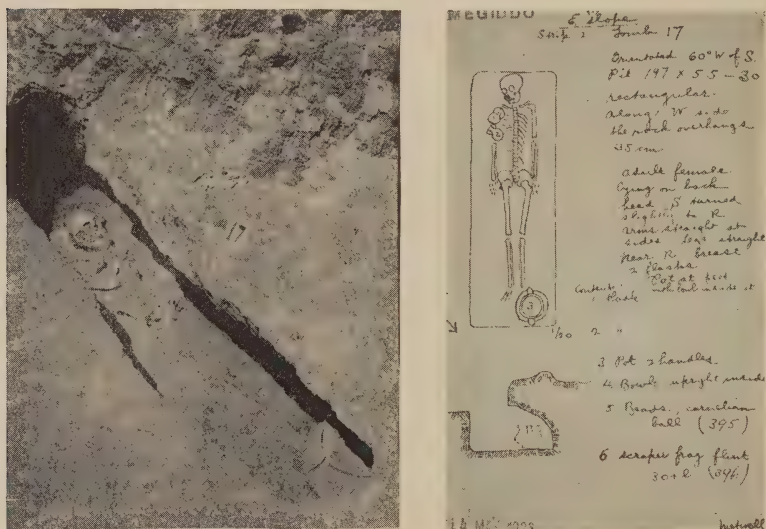 MEGIDDO
E Slope
Strip 2 Tomb 17
Orientated 60° W of S.
Pit 197 x 55 - 30
rectangular.
Along W side
the rock overhangs
35 cm.
adult female
lying on back
head S turned
slightly to R
arms straight at
sides legs straight
Near R breast
2 flasks
Pot at feet
with bowl inside it
Contents.
1 flask
1/20 2 "
3 Pot 2 handles.
4 Bowl upright inside
5 Beads, carnelian
ball (395)
6 scraper frag flint
30+ l (396)
17
3